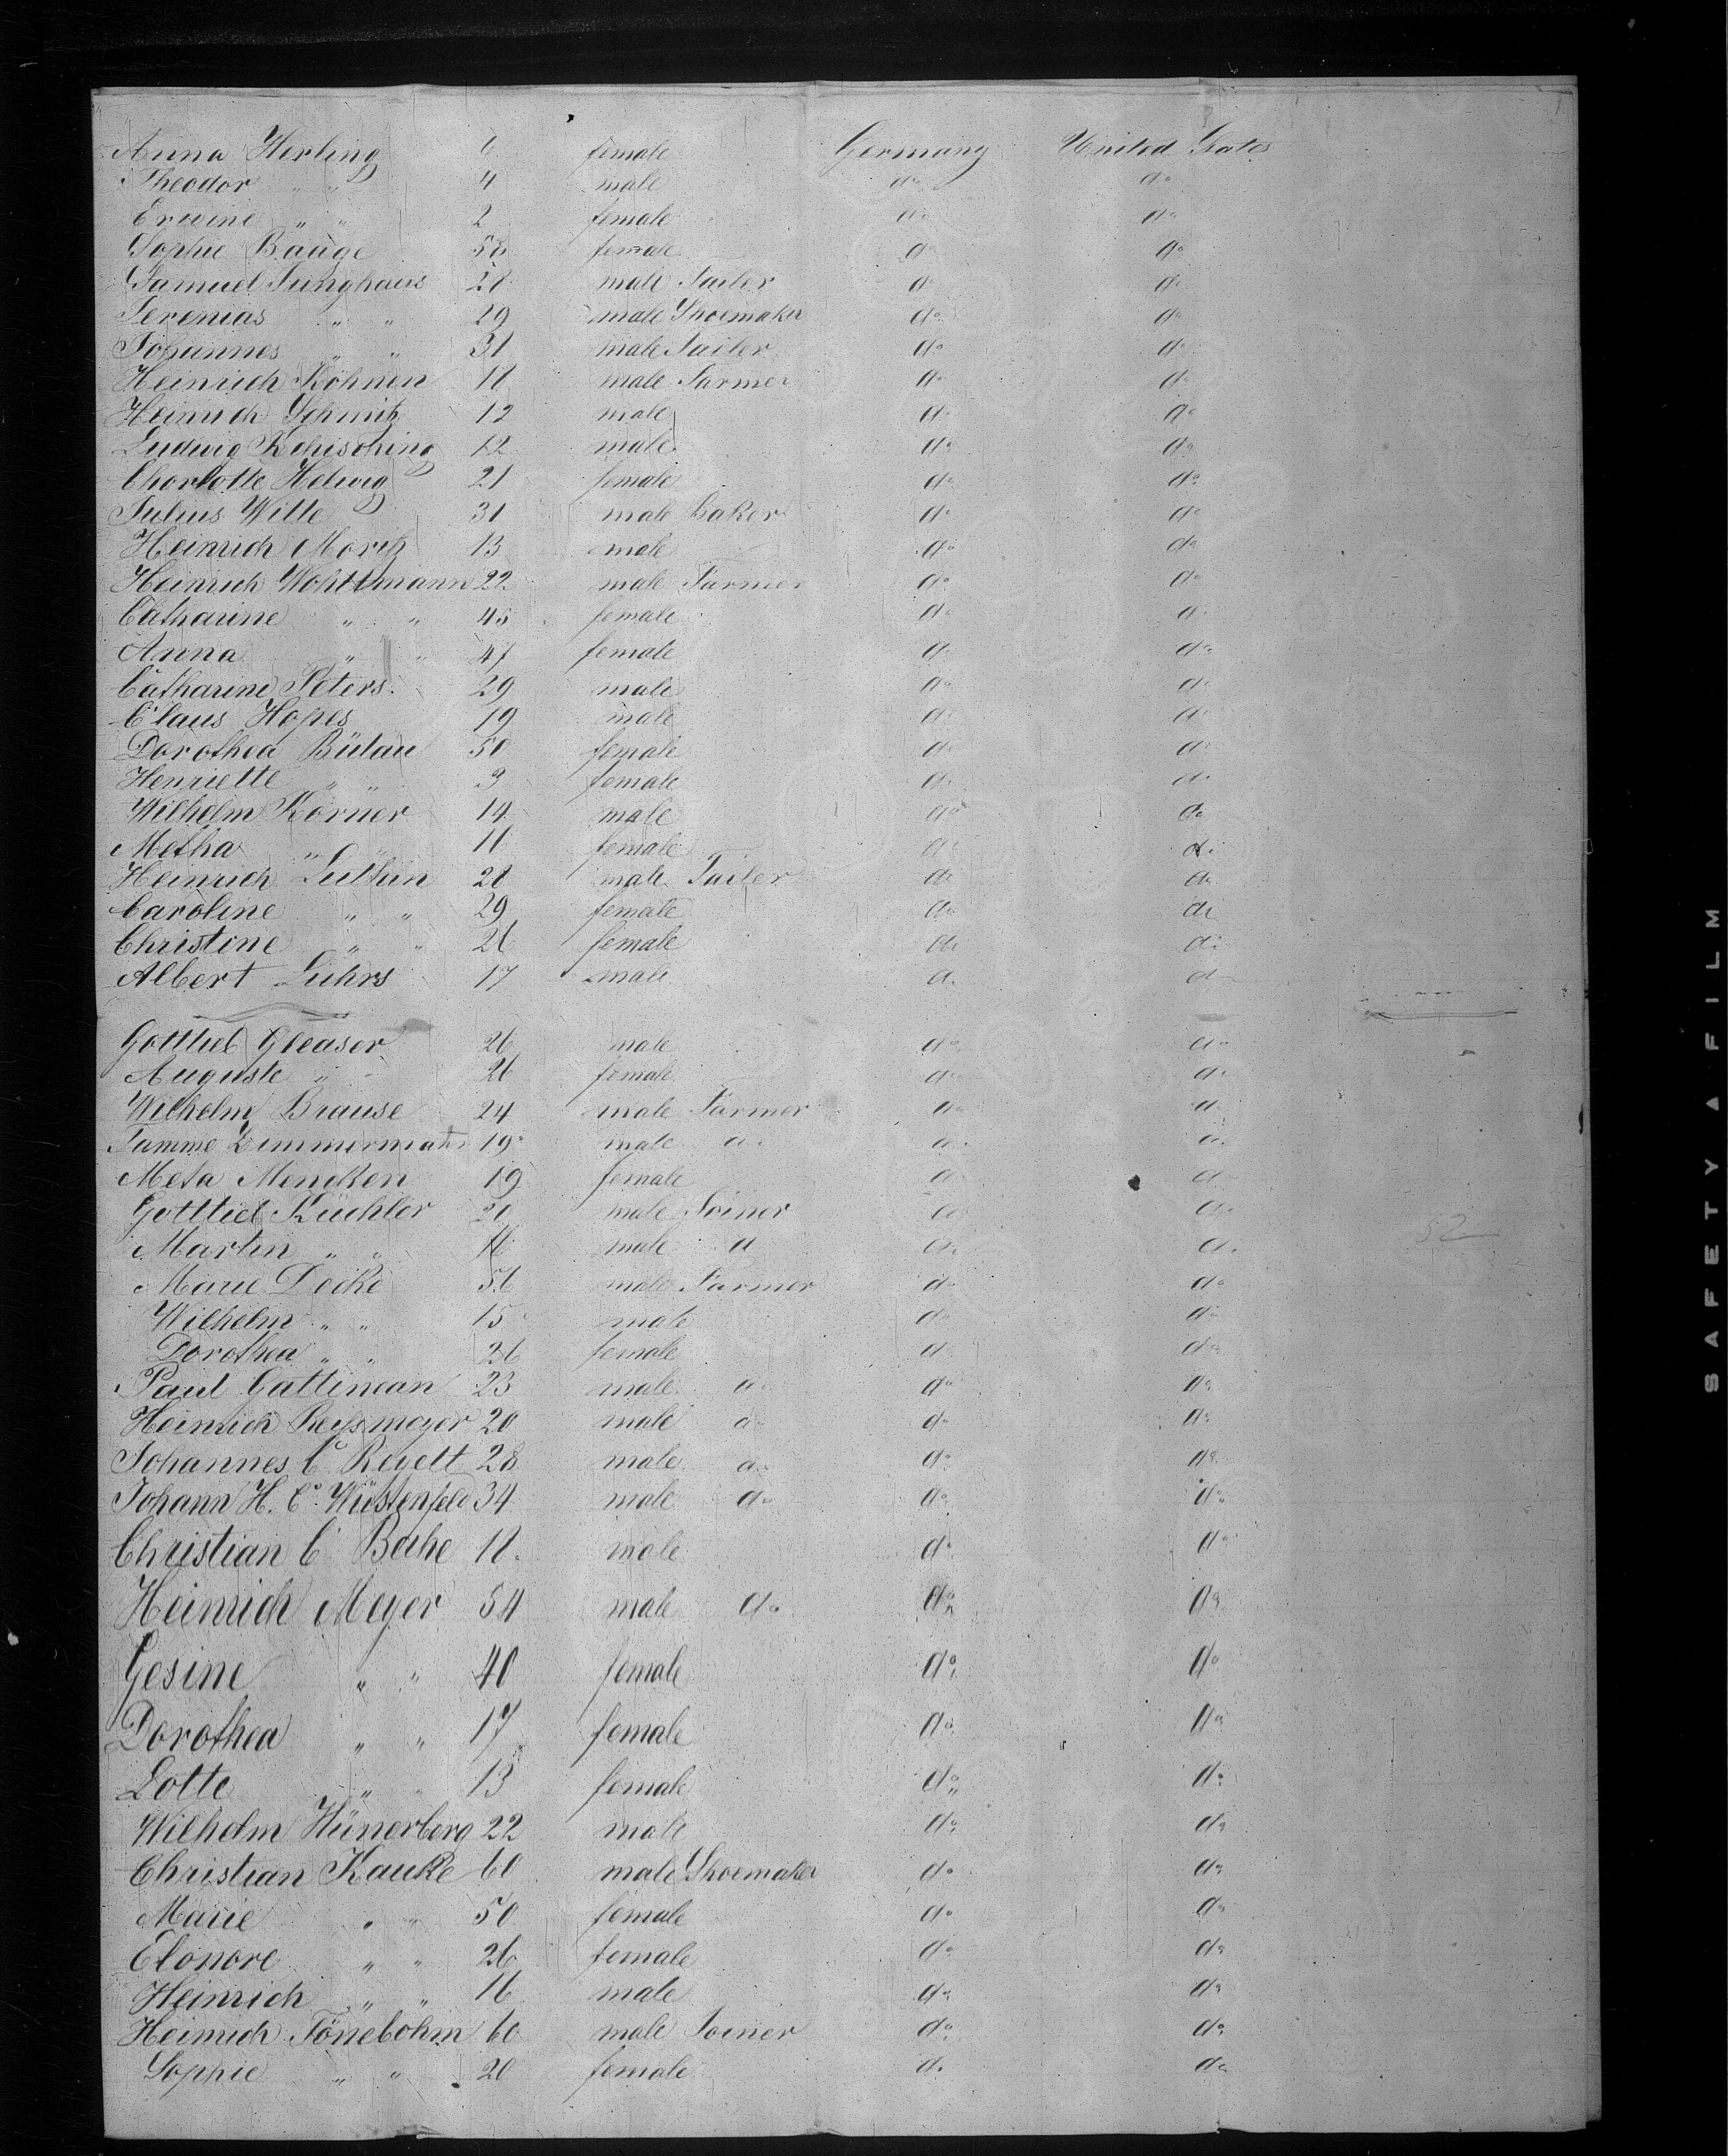 Anna Herling 6 female Germany United States
Theodor " " 4 male do do
Erwine " " 2 female do do
Sophie Bauge 58 female do do
Samuel Junghans 28 male Tailer do do
Jeremias " " 29 male Shoemaker do do
Johannes " " 31 male Tailer do do
Heinrich Köhnen 18 male Farmer do do
Heinrich Schmitz 12 male do do
Ludwig 12 male do do
Charlotte Helwig 21 female do do
Julius Wille 31 male Baker do do
Heinrich Moritz 13 male do do
Heinrich Wohltmann 22 male Farmer do do
Catharine " " 45 female do do
Anna " " 47 female do do
Catharine Peters 29 male do do
Claus Hopes 19 male do do
Dorothea Bülau 50 female do do
Henriette " " 9 female do do
Wilhelm Körner 14 male do do
Metha " " 16 female do do
Heinrich Luthin 28 male Tailer do do
Caroline " " 29 female do do
Christine " " 26 female do do
Albert Lührs 17 male do do
Gottlieb Gleaser 26 male do do
Auguste " 26 female do do
Wilhelm Brause 24 male Farmer do do
Tamme Zimmermann 19 male do do do
Meta Mencken 19 female do do
Gottlieb Küchler 20 male Joiner do do
Martin " " 16 male do do do 52
Marie Deike 56 male Farmer do do
Wilhelm " " 15 male do do
Dorothea " " 26 female do do
Paul Gattiman 23 male do do do
Heinrich 20 male do do do
Johannes C Reyelt 28 male do do do
Johann H. C. Wüstenfeld 34 male do do do
Christian C Bathe 18 male do do
Heinrich Meyer 54 male do do do
Gesine " " 40 female do do
Dorothea " " 17 female do do
Lotte " " 13 female do do
Wilhelm Hünerberg 22 male do do
Christian Kauke 60 male Shoemaker do do
Marie " " 50 female do do
Elonore " " 26 female do do
Heinrich " " 16 male do do
Heinrich Tönebohm 60 male Joiner do do
Sophie " " 20 female do do
SAFETY A FILM